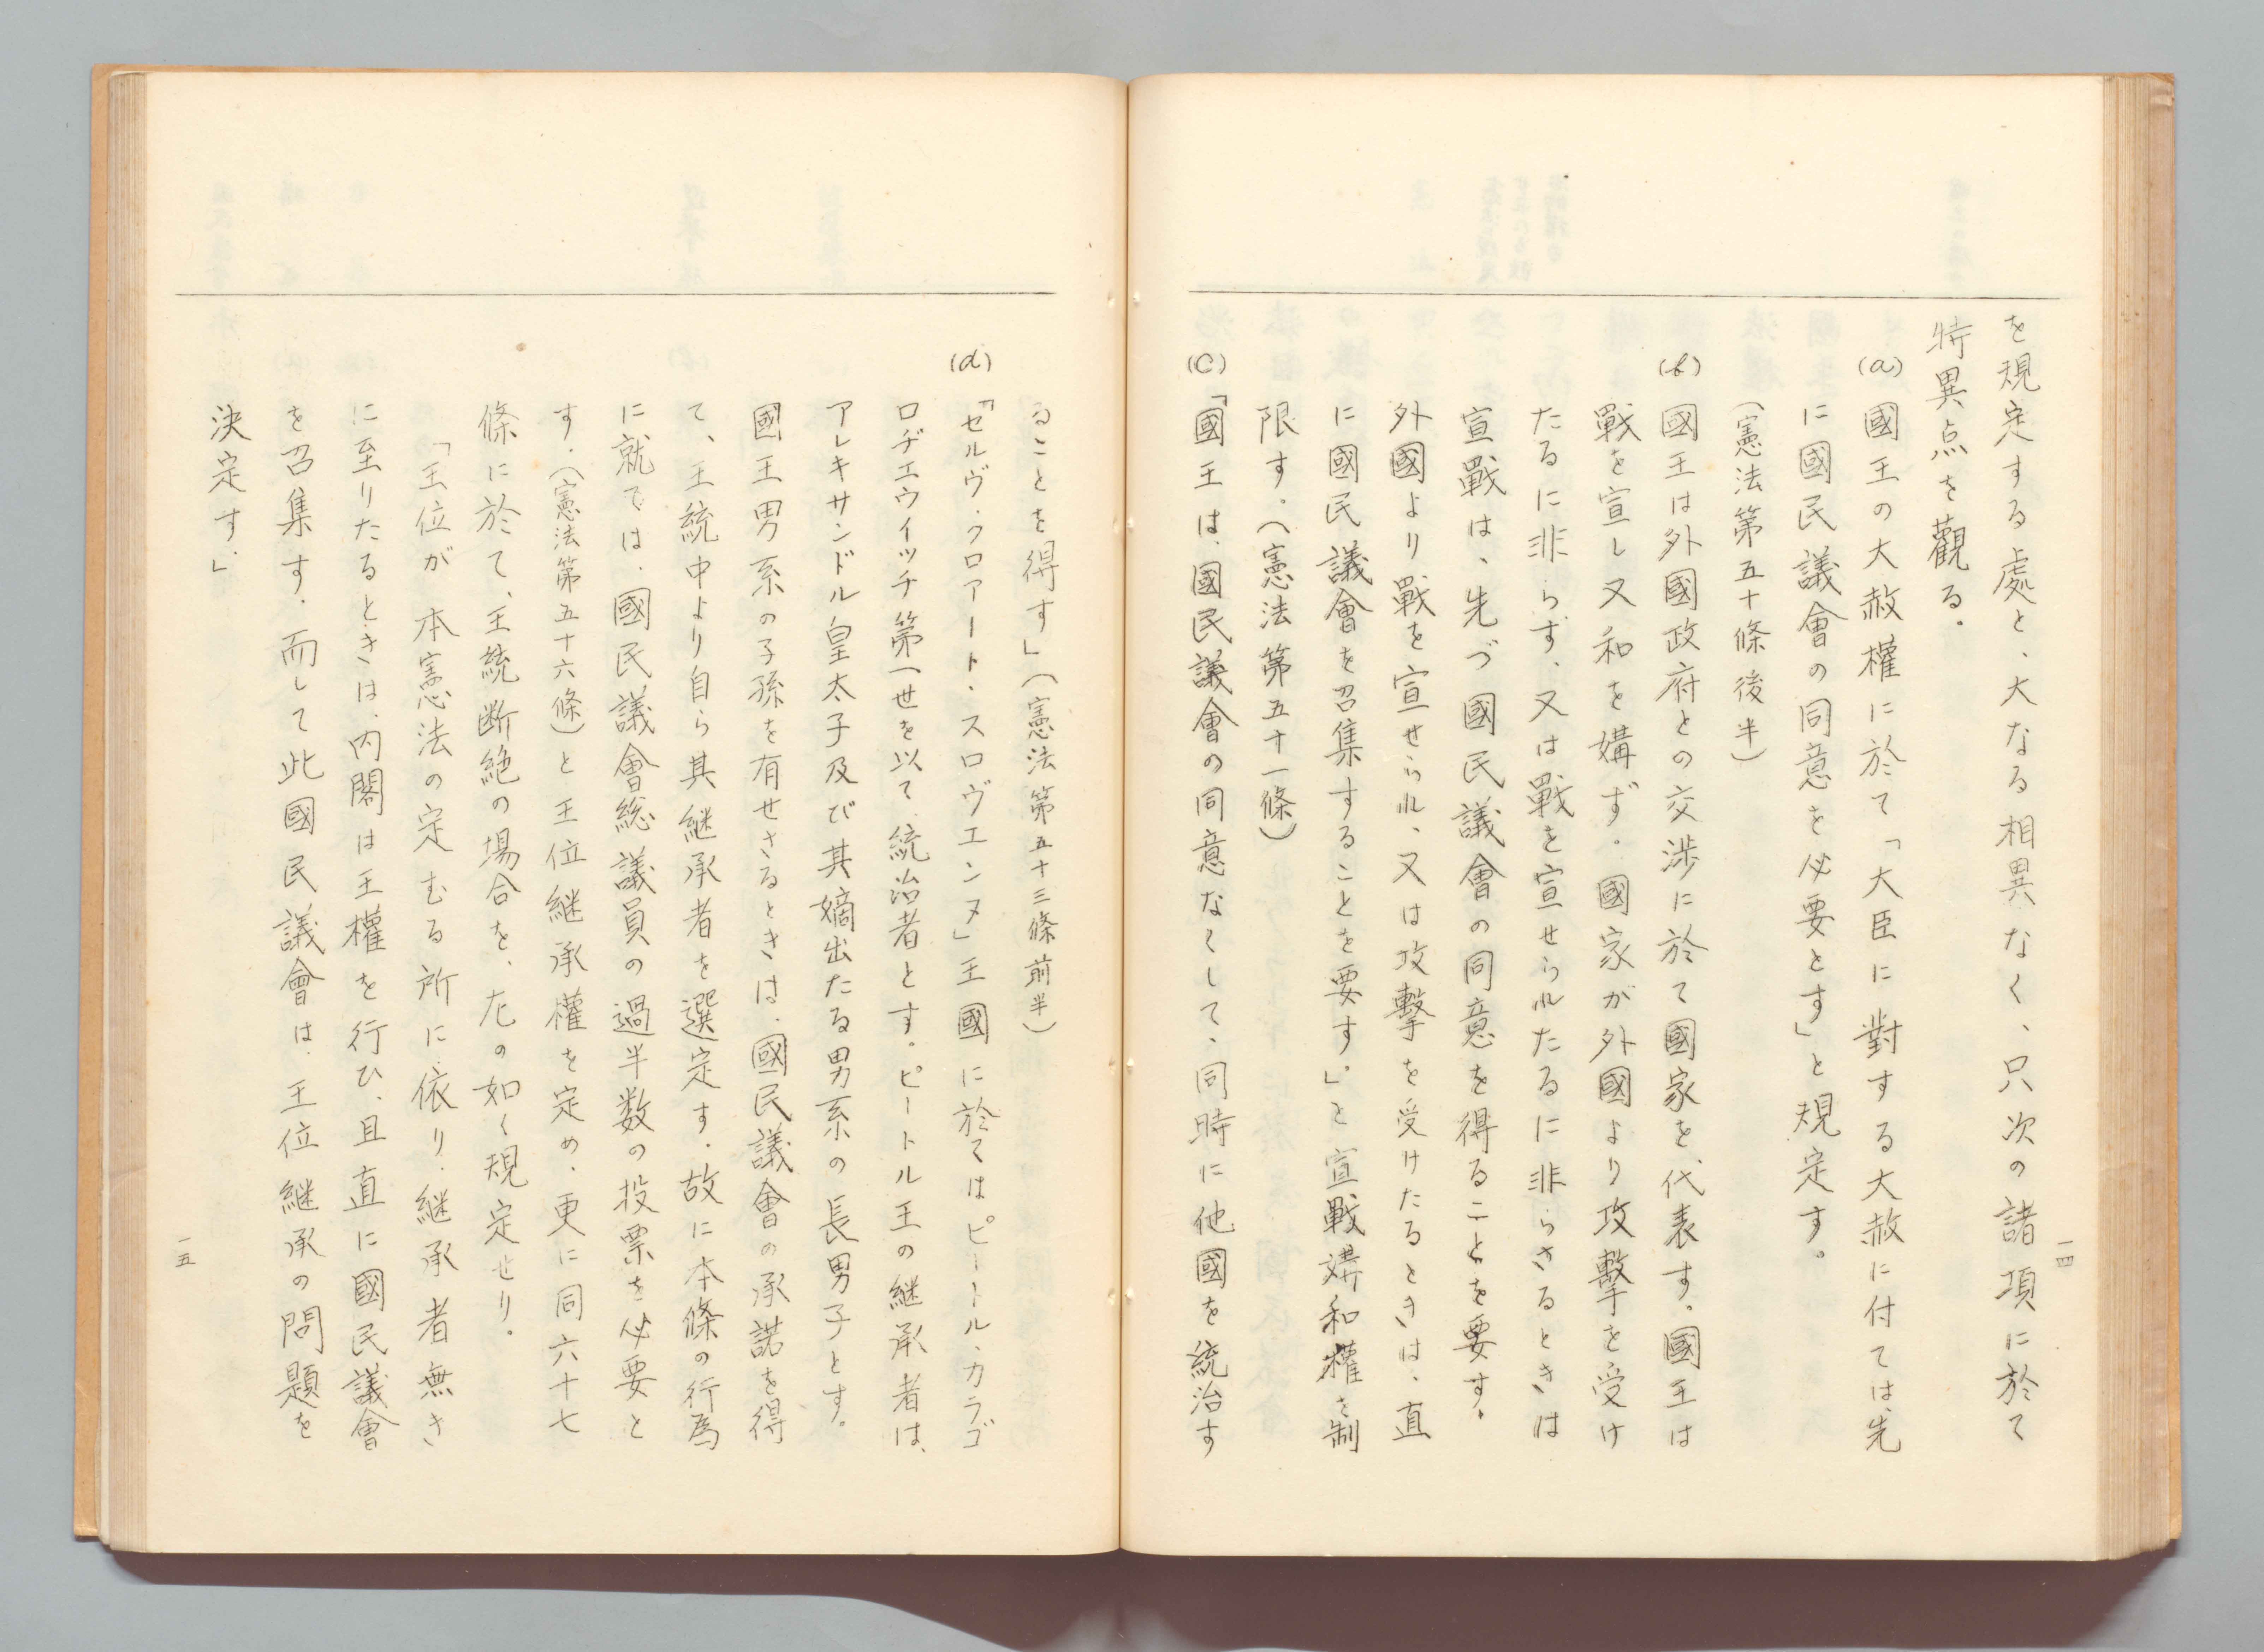 を規定する處と、大なる相異なく、只次の諸項に於て
特異点を觀る。
(a) 國王の大赦權に於て「大臣に對する大赦に付ては、先
に國民議會の同意を必要とす」と規定す。
(憲法第五十條後半)
(b) 國王は外國政府との交渉に於て國家を代表す。國王は
戰を宣し又和を媾ず。國家が外國より攻擊を受け
たるに非らず、又は戰を宣せられたるに非らさるときは
宣戰は、先づ國民議會の同意を得ることを要す。
外國より戰を宣せられ、又は攻擊を受けたるときは、直
に國民議會を召集することを要す。」と宣戰媾和權を制
限す。(憲法第五十一條)
(c)「國王は、國民議會の同意なくして、同時に他國を統治す
一四
ることを得す」(憲法第五十三條前半)
(d)「セルヴ・クロアート・スロヴエンヌ」王國に於てはピートル・カラゴ
ロヂエウイッチ第一世を以て統治者とす。ピートル王の継承者は、
アレキサンドル皇太子及び其嫡出たる男系の長男子とす。
國王男系の子孫を有せさるときは、國民議會の承諾を得
て、王統中より自ら其継承者を選定す。故に本條の行為
に就ては、國民議會総議員の過半数の投票を必要と
す。(憲法第五十六條)と王位継承權を定め、更に同六十七
條に於て、王統断絶の場合を、左の如く規定せり。
「王位が本憲法の定むる所に依り、継承者無き
に至りたるときは、内閣は王權を行ひ、且直に國民議會
を召集す。而して此國民議會は、王位継承の問題を
決定す。」
一五